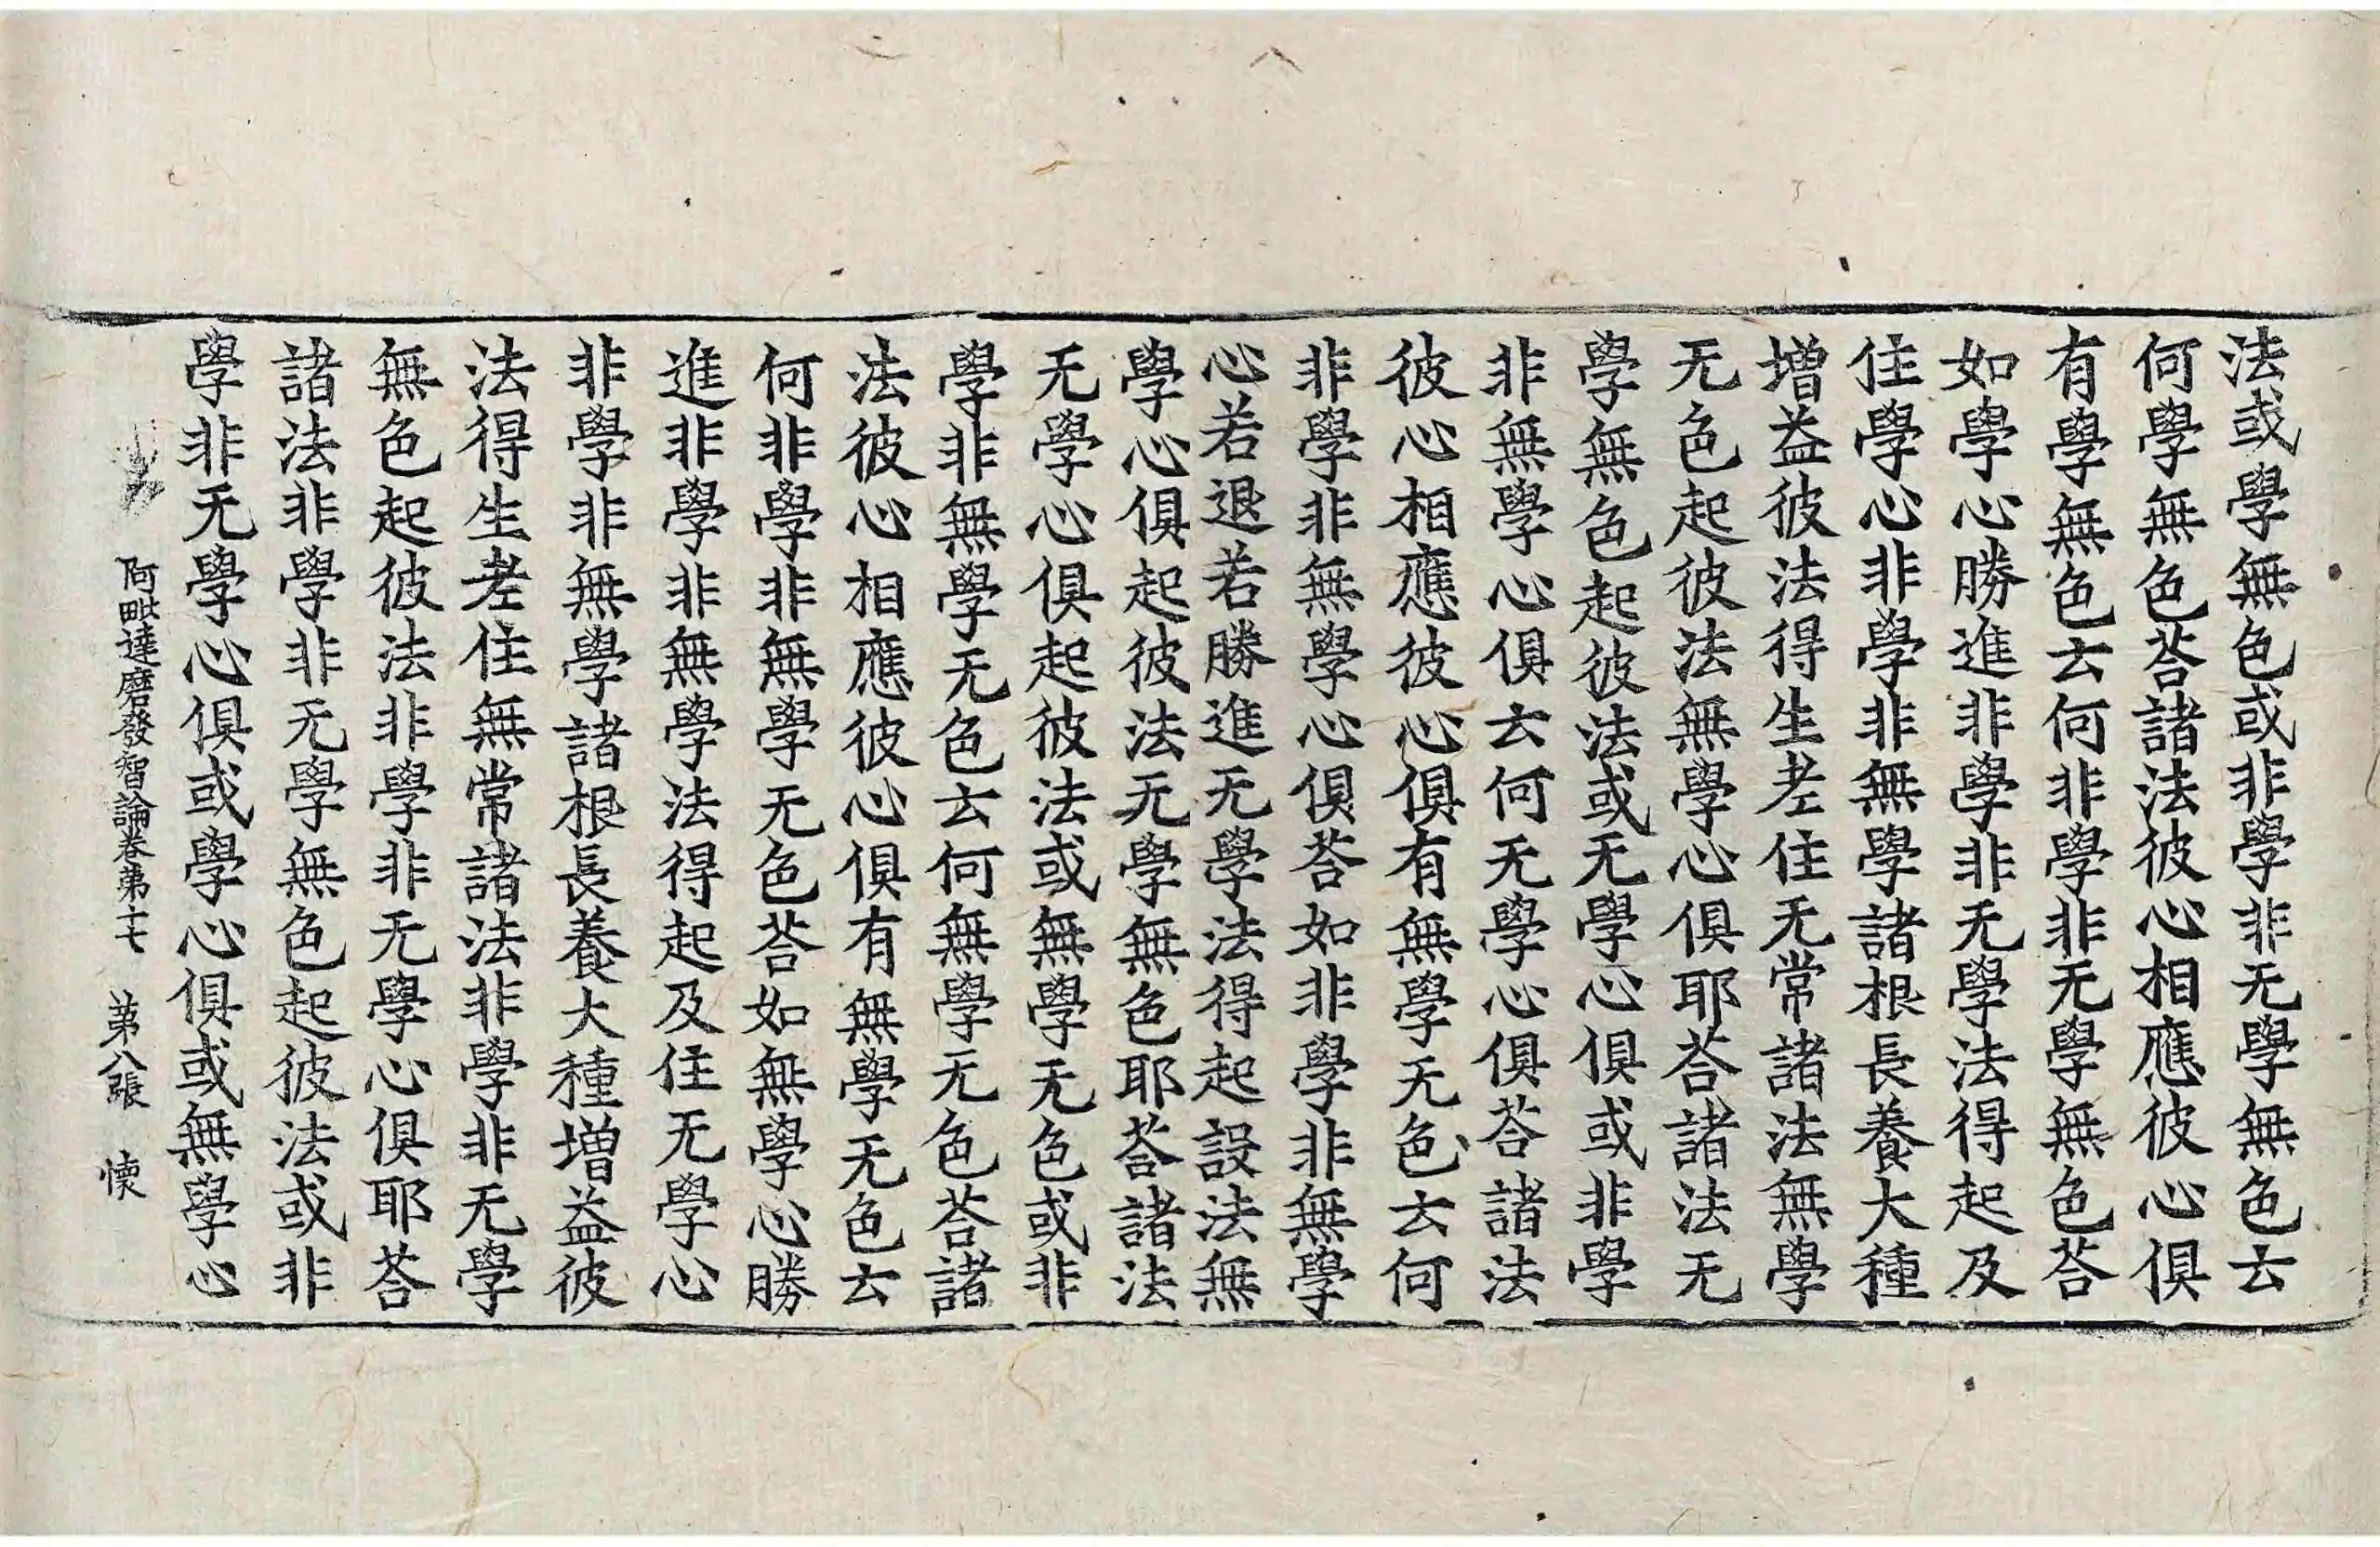 法或學無色或非學非无學無色云
何學無色荅諸法彼心相應彼心俱
有學無色云何非學非无學無色荅
如學心勝進非學非无學法得起及
住學心非學非無學諸根長養大種
增益彼法得生老住无常諸法無學
无色起彼法無學心俱耶荅諸法无
學無色起彼法或无學心俱或非學
非無學心俱云何无學心俱荅諸法
彼心相應彼心俱有無學无色云何
非學非無學心俱荅如非學非無學
心若退若勝進无學法得起設法無
學心俱起彼法无學無色耶荅諸法
无學心俱起彼法或無學无色或非
學非無學无色云何無學无色荅諸
法彼心相應彼心俱有無學无色云
何非學非無學无色荅如無學心勝
進非學非無學法得起及住无學心
非學非無學諸根長養大種增益彼
法得生老住無常諸法非學非无學
無色起彼法非學非无學心俱耶荅
諸法非學非无學無色起彼法或非
學非无學心俱或學心俱或無學心
阿毗達磨發智論卷第十七 第八張 懐